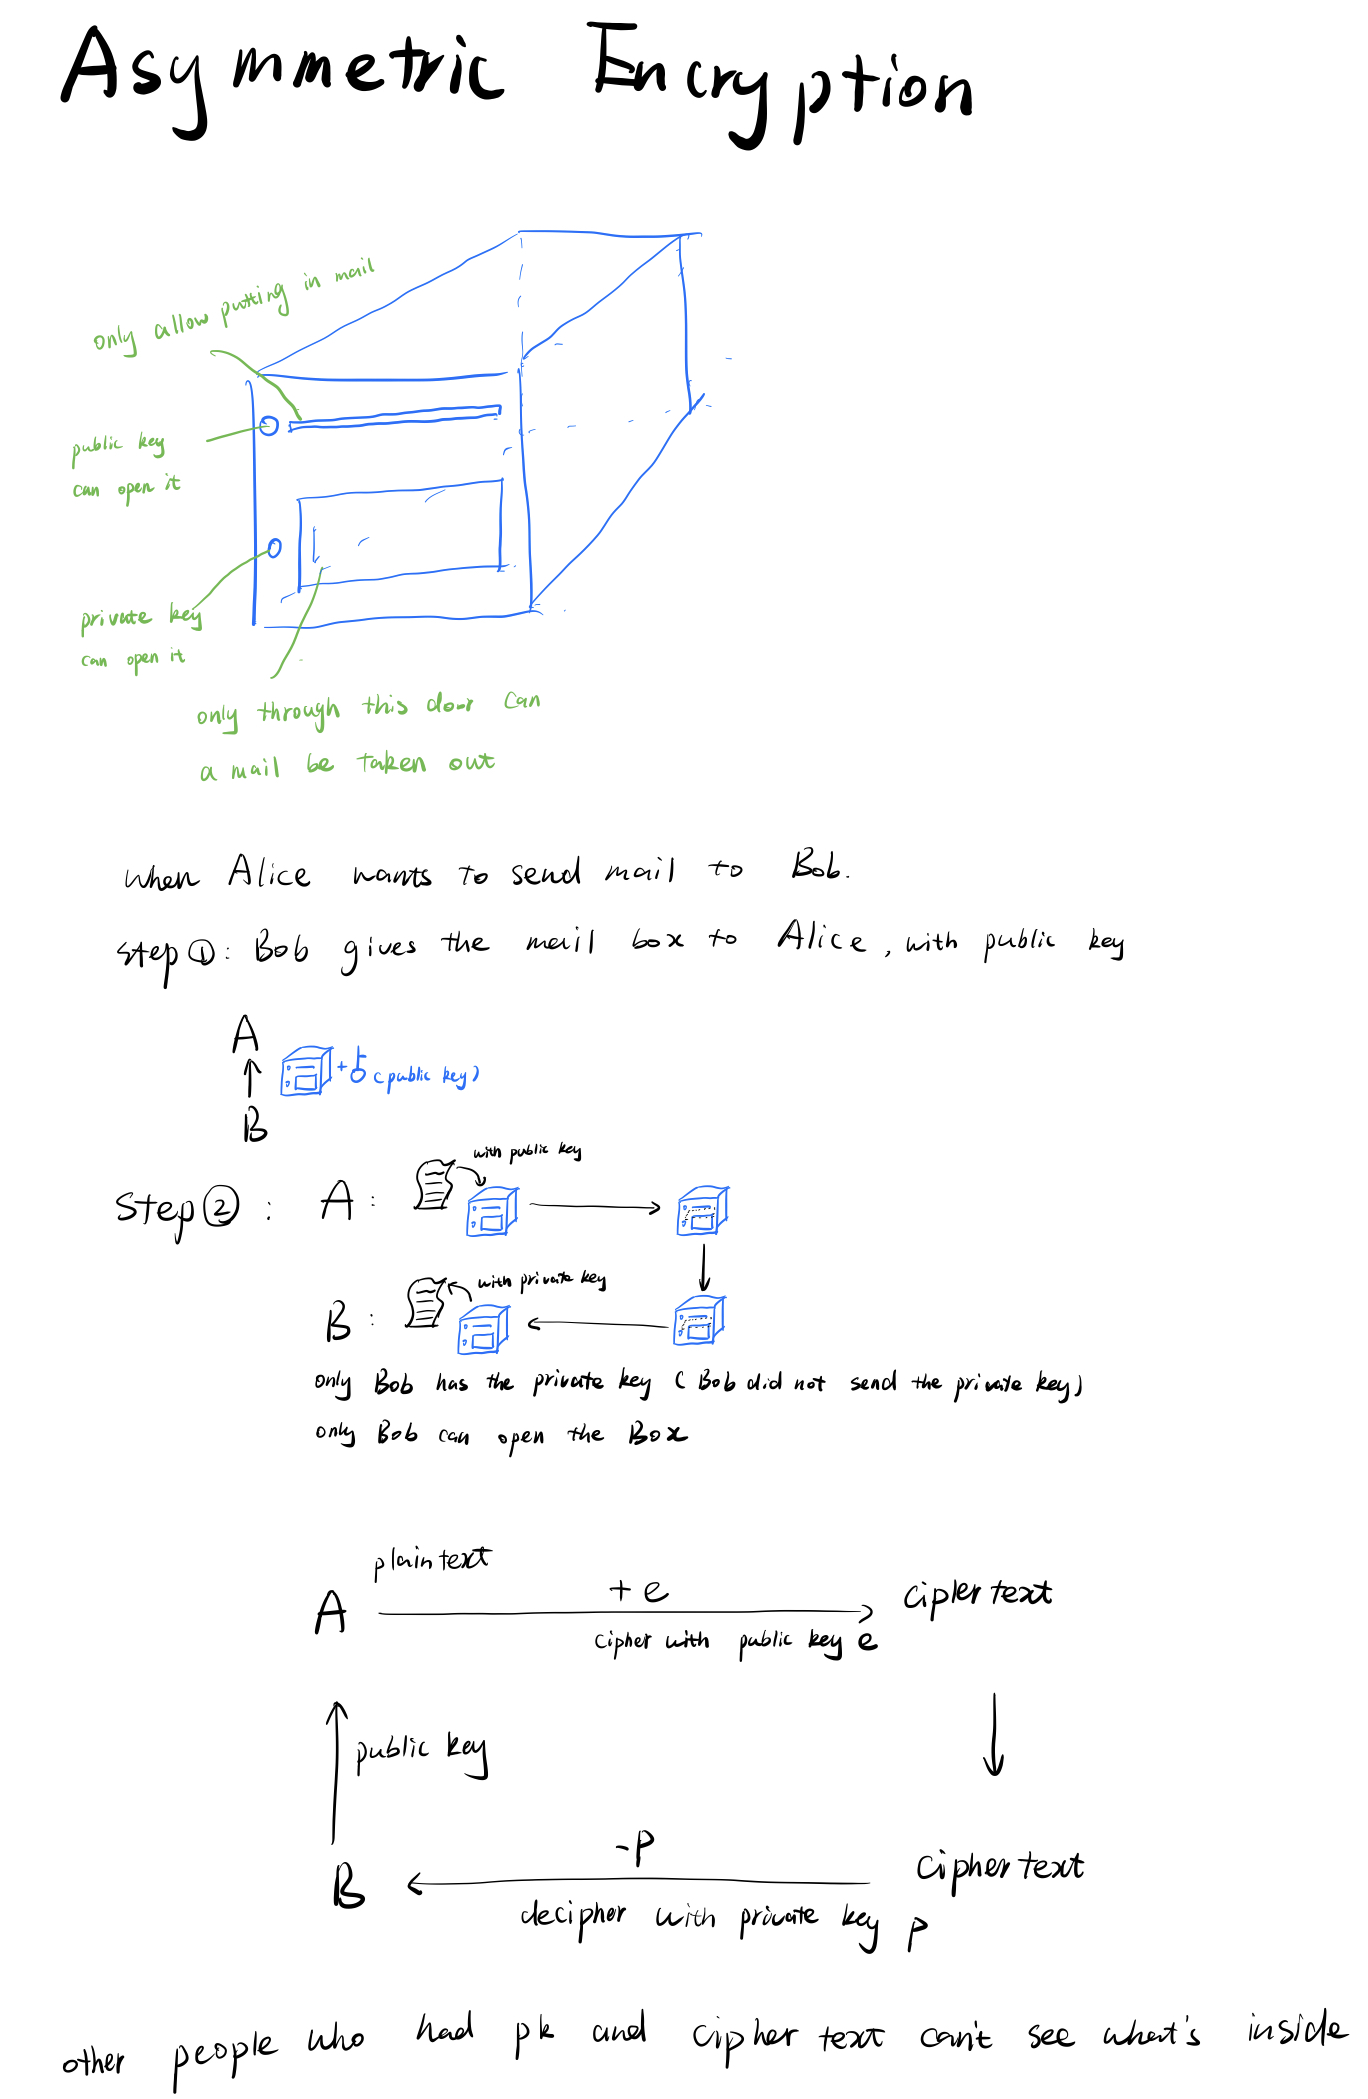 Asymmetric Encryption
only allow putting in mail
public key
can open it
private key
can open it
only through this door can
a mail be taken out
when Alice wants to send mail to Bob.
step ①: Bob gives the mail box to Alice, with public key
A
+ (public key)
B
Step ② : A :
with public key
B :
with private key
only Bob has the private key ( Bob did not send the private key)
only Bob can open the Box
plain text
A
+ e
cipler text
cipher with public key e
public key
-P
B
cipher text
decipher with private key p
other people who had pk and cipher text can't see what's inside